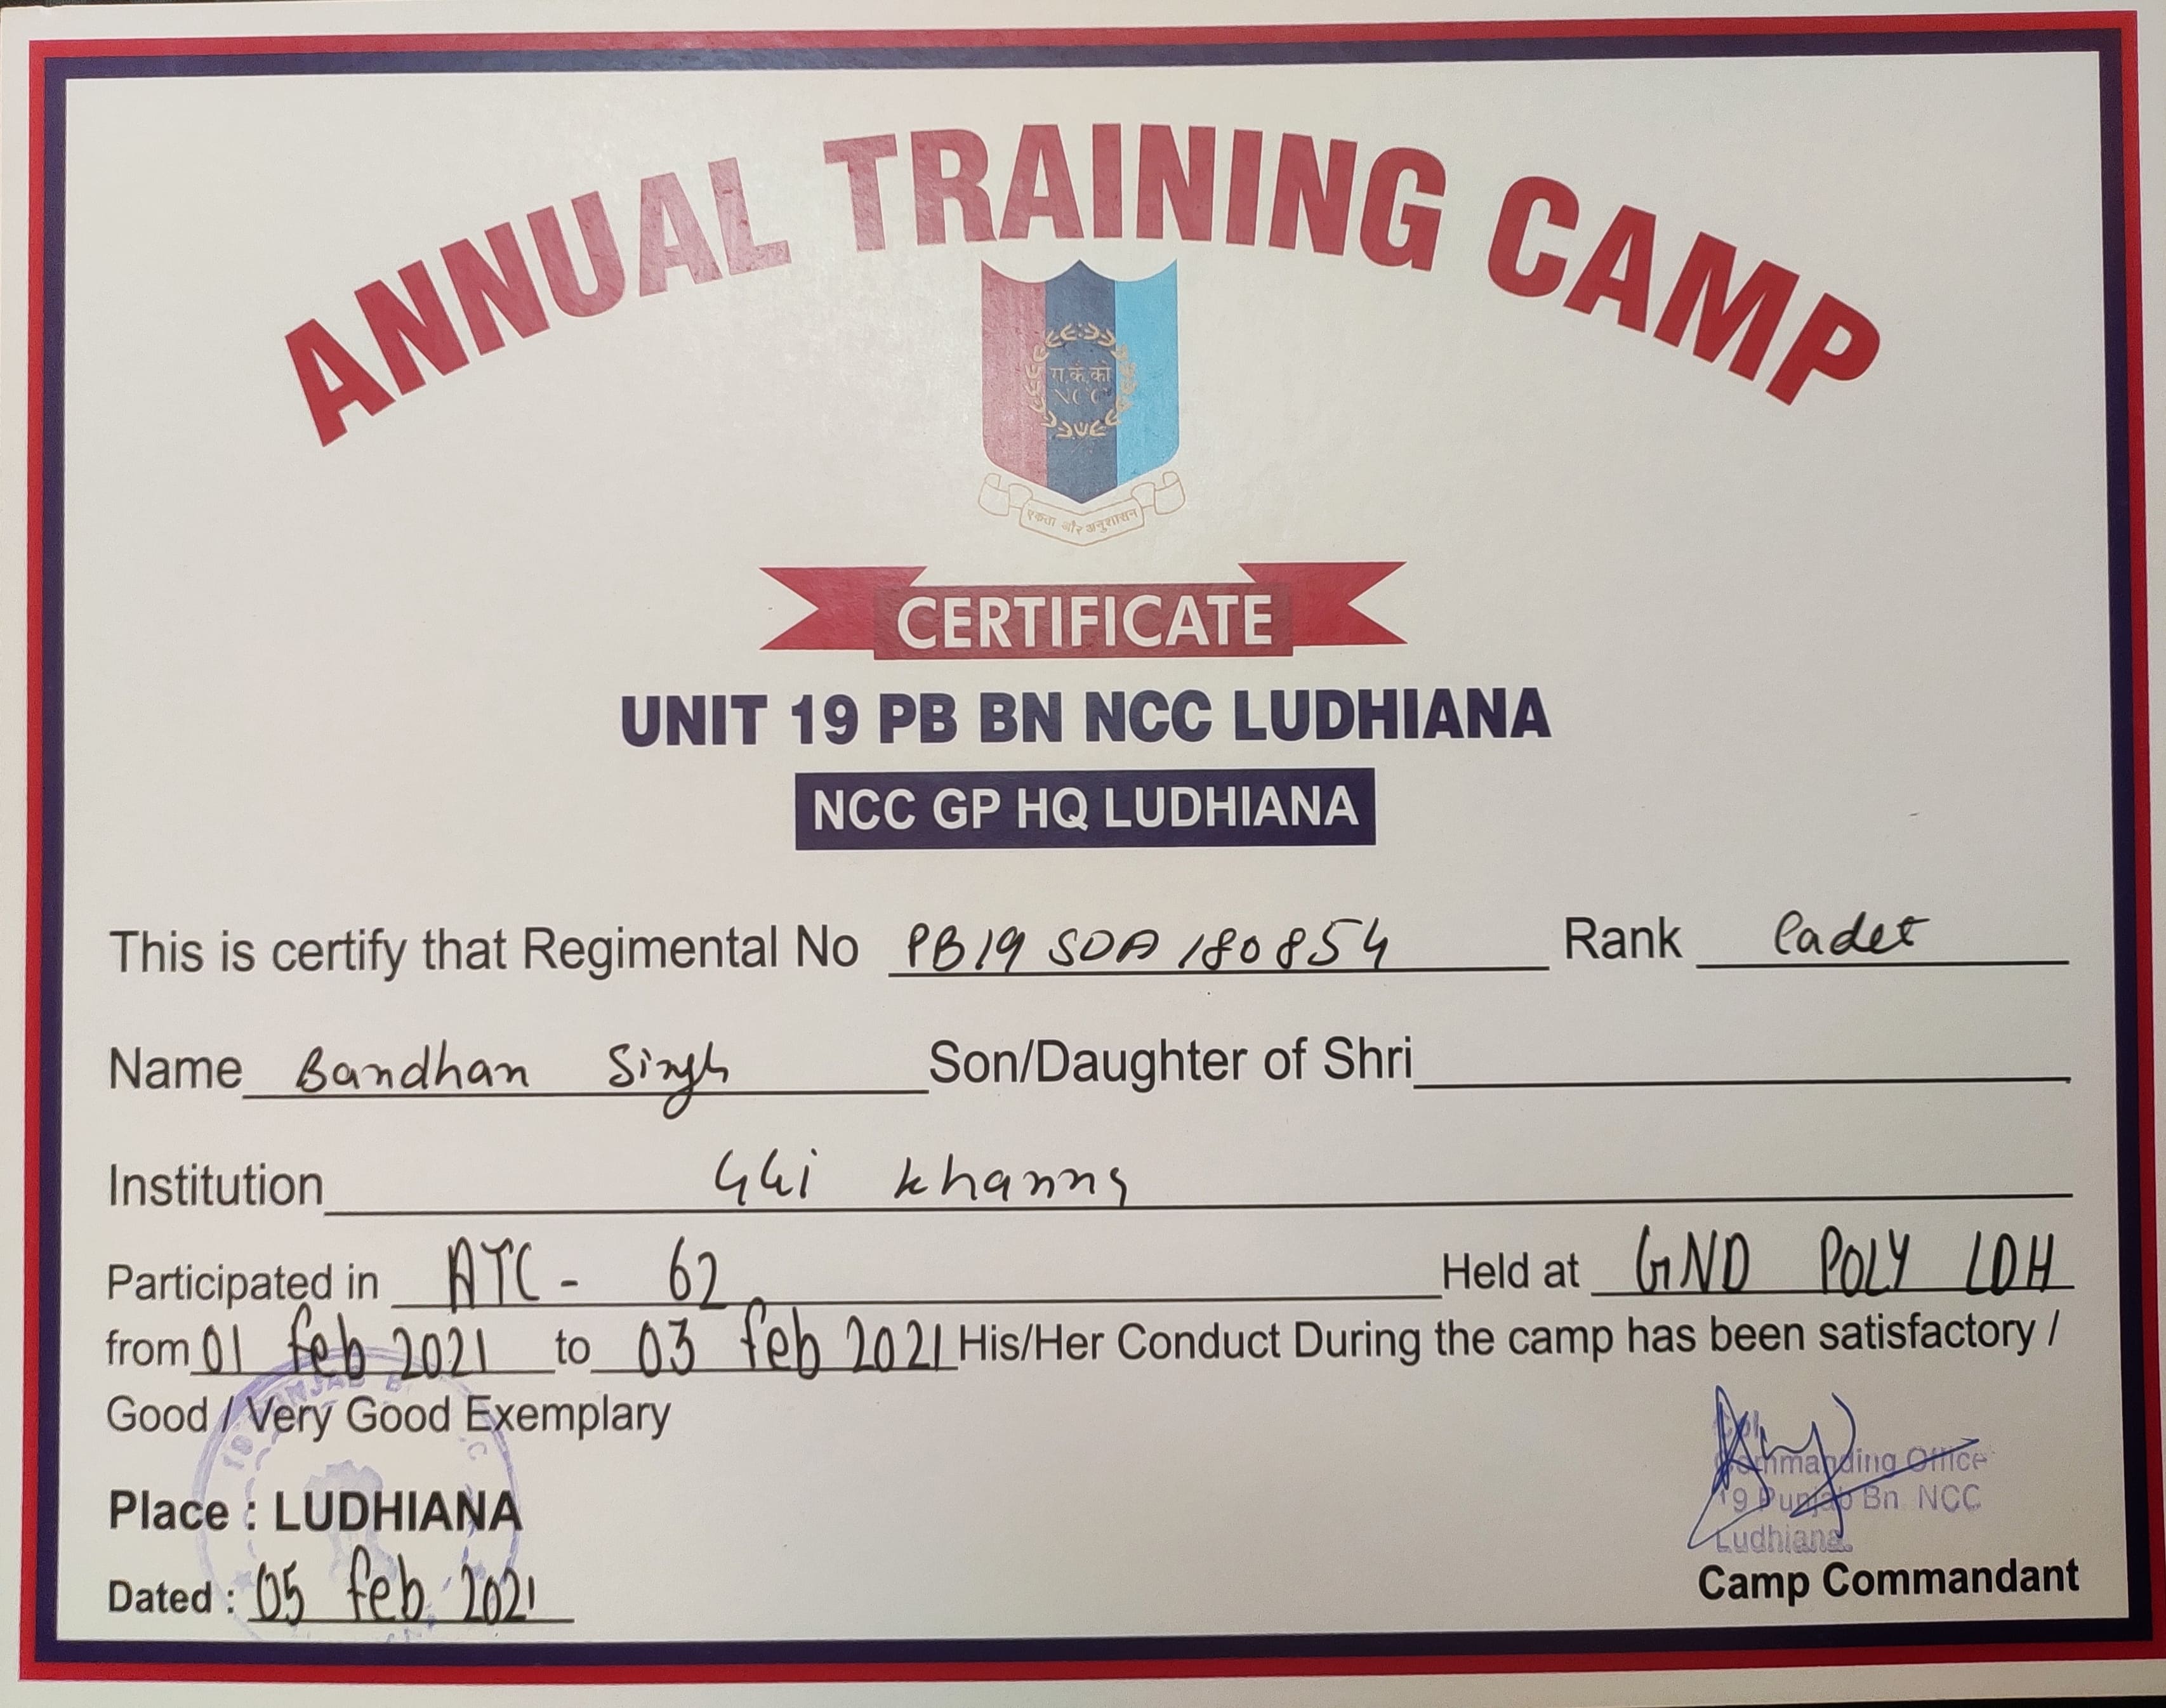 ANNUAL TRAINING CAMP
रा.कै.को
NCC
एकता और अनुशासन
CERTIFICATE
UNIT 19 PB BN NCC LUDHIANA
NCC GP HQ LUDHIANA
This is certify that Regimental No PB19 SDA 180854 Rank Cadet
Name Bandhan Singh Son/Daughter of Shri
Institution GGI Khanna
Participated in ATC - 62 Held at GND POLY LDH
from 01 feb 2021 to 03 feb 2021 His/Her Conduct During the camp has been satisfactory /
Good / Very Good Exemplary
Place : LUDHIANA
Dated : 05 feb 2021
Col
Commanding Office
19 Punjab Bn NCC
Ludhiana.
Camp Commandant